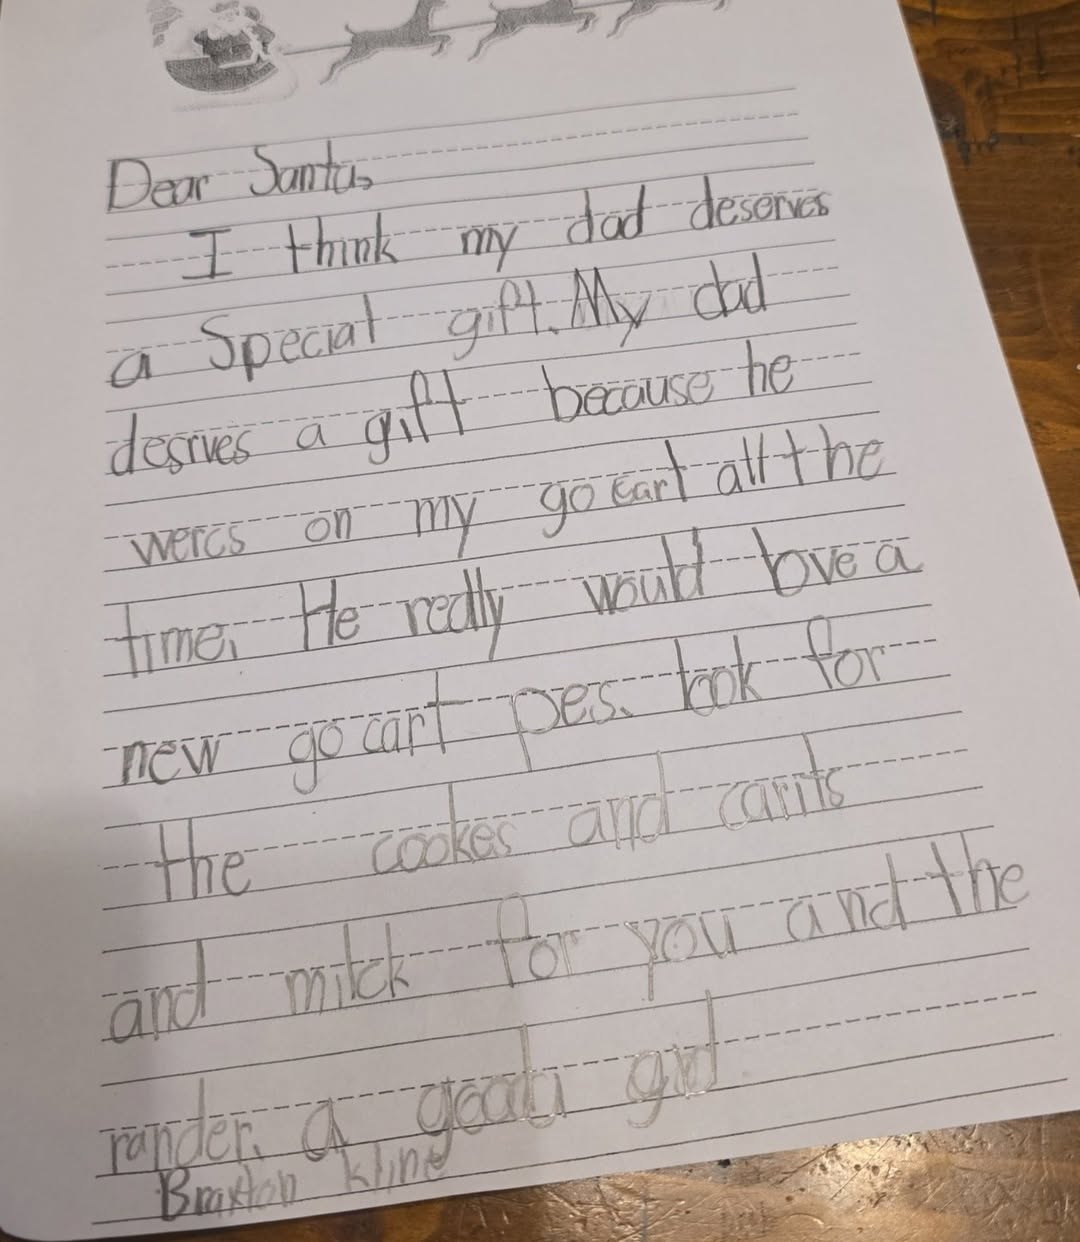 Dear Santa,
I think my dad deserves
a Special gift. My dad
desrves a gift because he
wercs on my go cart all the
time. He really would love a
new go cart pes. look for
the cookes and carits
and milck for you and the
rander. a
Braxton Kline